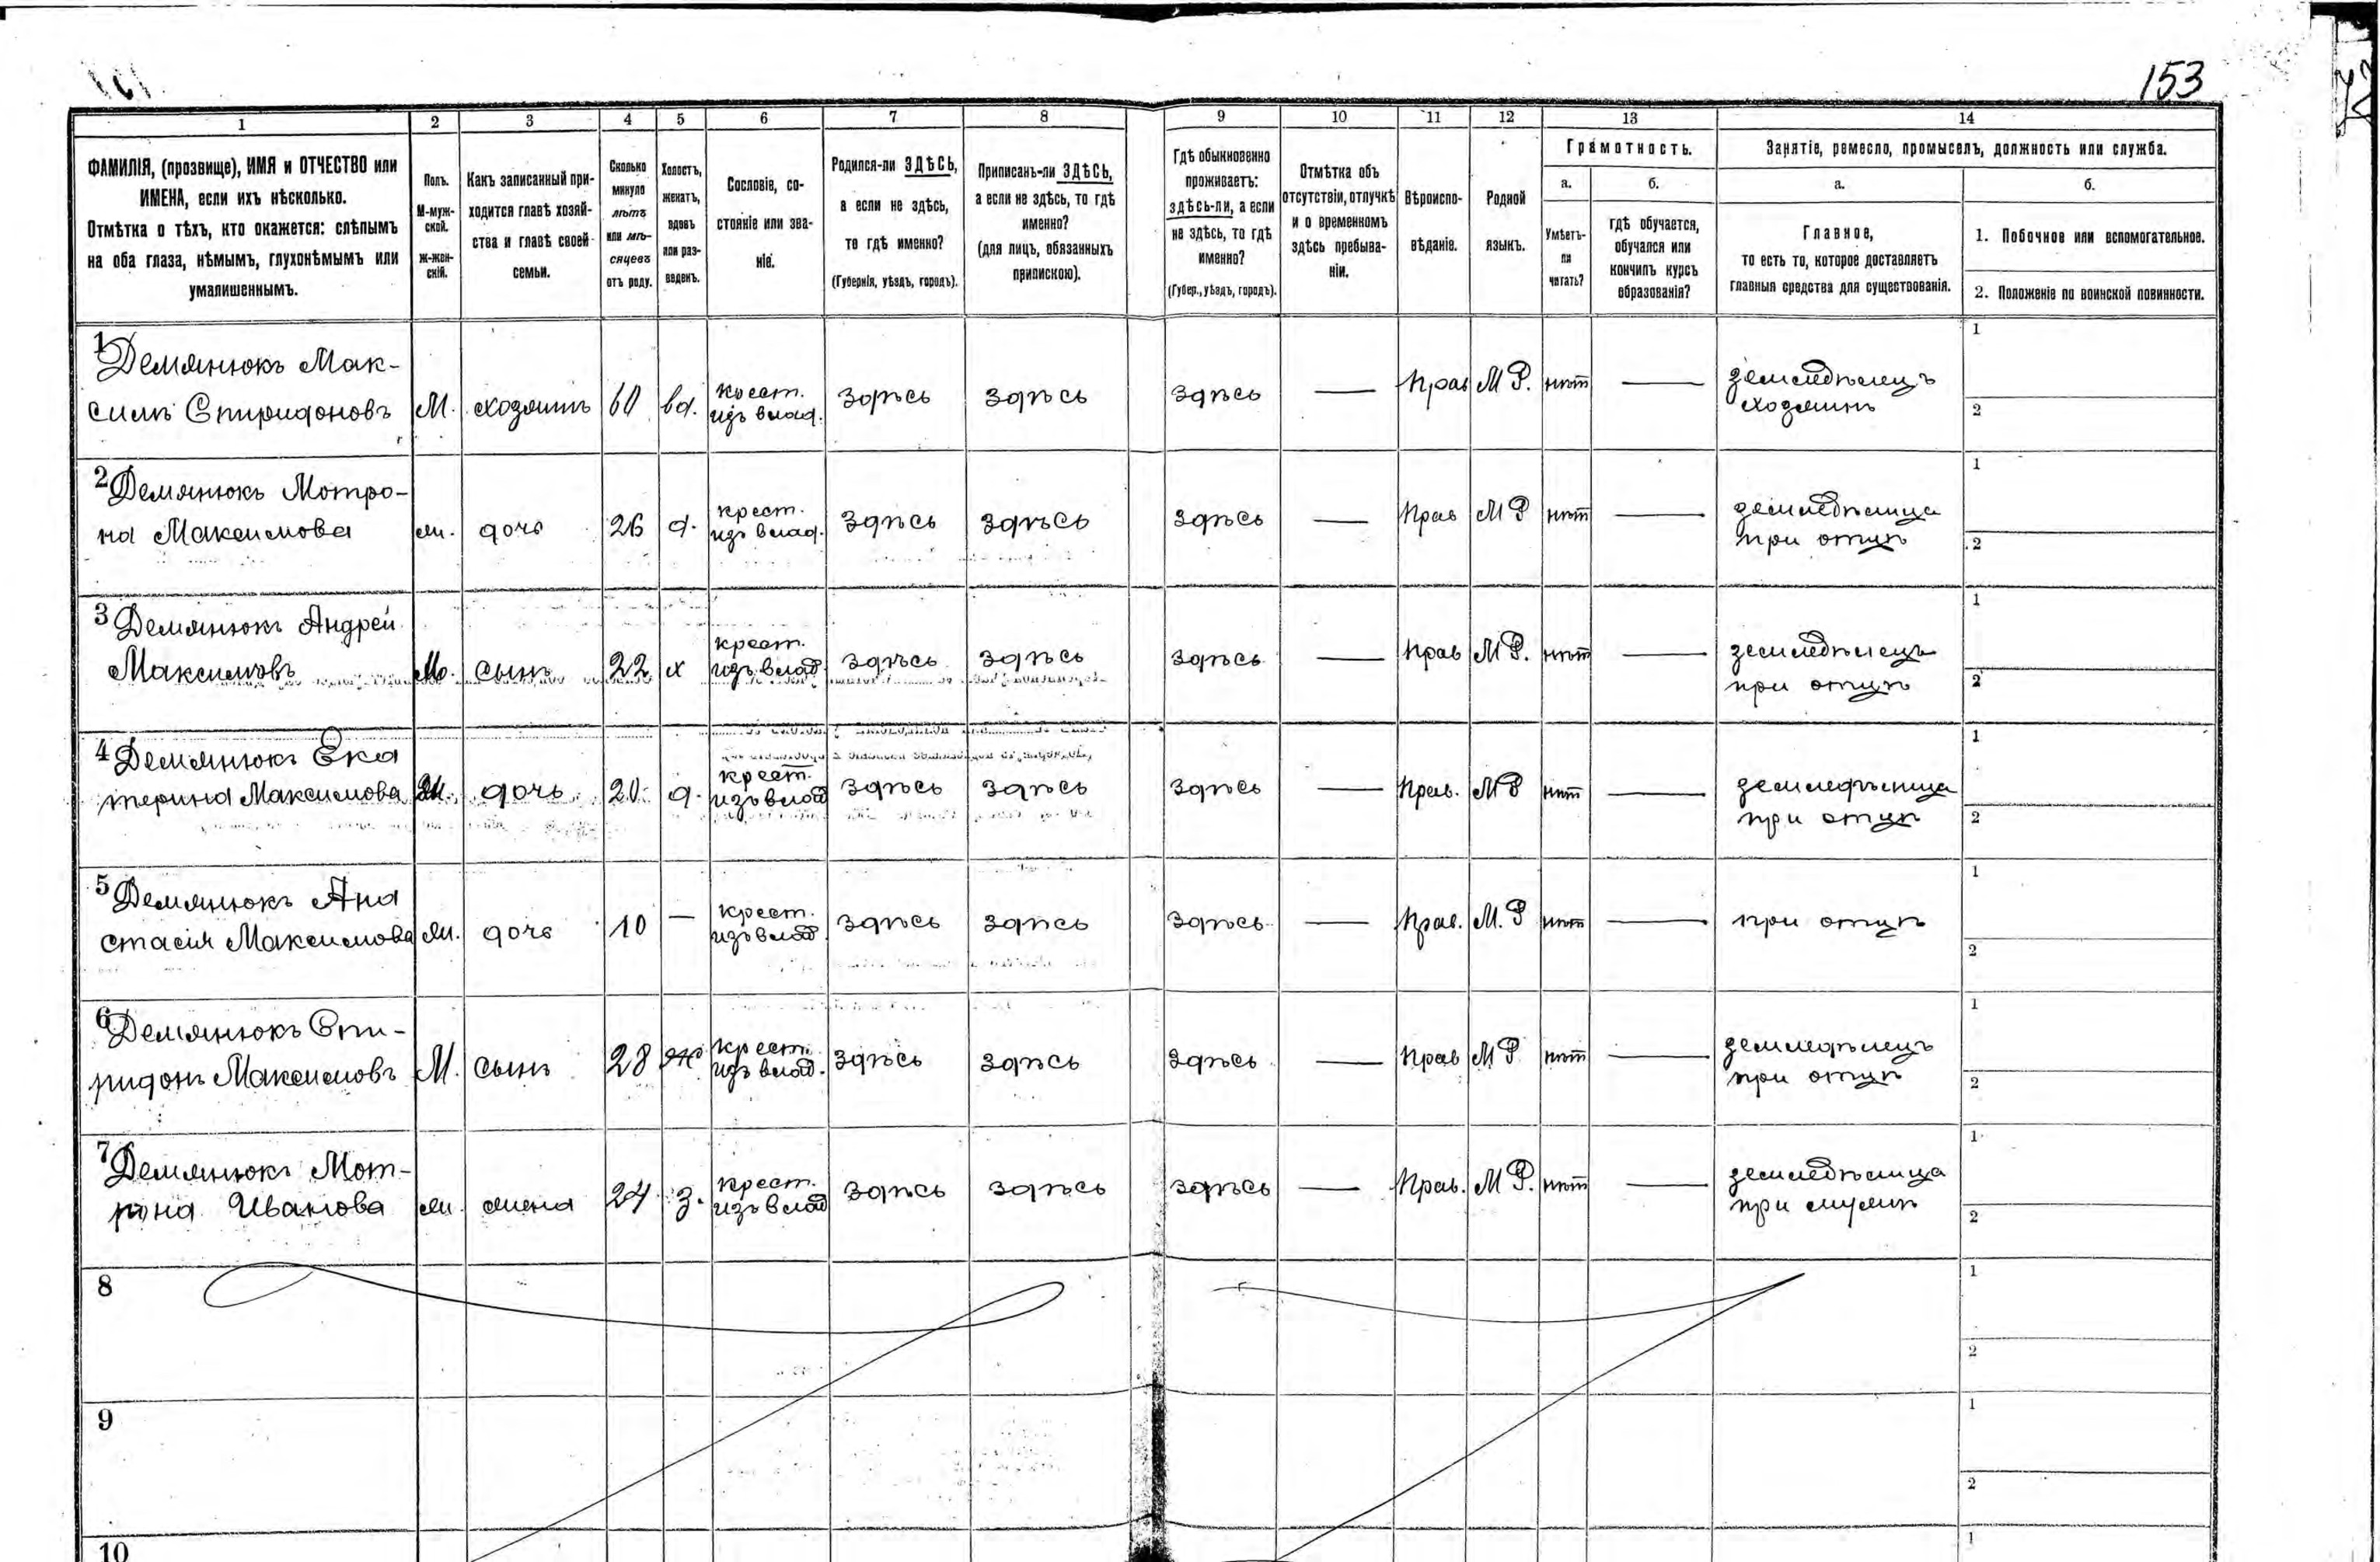 153
1 2 3 4 5 6 7 8 9 10 11 12 13 14
ФАМИЛІЯ, (прозвище), ИМЯ и ОТЧЕСТВО или
ИМЕНА, если ихъ нѣсколько.
Отмѣтка о тѣхъ, кто окажется: слѣпымъ
на оба глаза, нѣмымъ, глухонѣмымъ или
умалишеннымъ.
Полъ.
М-муж-
ской.
Ж-жен-
скій.
Какъ записанный при-
ходится главѣ хозяй-
ства и главѣ своей
семьи.
Сколько
минуло
лѣтъ
или мѣ-
сяцевъ
отъ роду.
Холостъ,
женатъ,
вдовъ
или раз-
веденъ.
Сословіе, со-
стояніе или зва-
ніе.
Родился-ли ЗДѢСЬ,
а если не здѣсь,
то гдѣ именно?
(Губернія, уѣздъ, городъ).
Приписанъ-ли ЗДѢСЬ,
а если не здѣсь, то гдѣ
именно?
(для лицъ, обязанныхъ
припискою).
Гдѣ обыкновенно
проживаетъ:
здѣсь-ли, а если
не здѣсь, то гдѣ
именно?
(Губер., уѣздъ, городъ).
Отмѣтка объ
отсутствіи, отлучкѣ
и о временномъ
здѣсь пребыва-
ніи.
Вѣроиспо-
вѣданіе.
Родной
языкъ.
Грамотность.
а.
Умѣетъ-
ли
читать?
б.
гдѣ обучается,
обучался или
кончилъ курсъ
образованія?
Занятіе, ремесло, промыселъ, должность или служба.
а.
Главное,
то есть то, которое доставляетъ
главныя средства для существованія.
б.
1. Побочное или вспомогательное.
2. Положеніе по воинской повинности.
1 Демянюкъ Мак-
симъ Спиридоновъ М. хозяинъ 60 вд. крест. изъ влад. здѣсь здѣсь здѣсь — Прав М Р. нѣт — земледѣлецъ хозяинъ 1 2
2 Демянюкъ Мотро-
на Максимова ж. дочь 26 д. крест. изъ влад. здѣсь здѣсь здѣсь — Прав М Р нѣт — земледѣлица при отцѣ 1 2
3 Демянюкъ Андрей
Максимовъ М. сынъ 22 х крест. изъ влад здѣсь здѣсь здѣсь — Прав М Р. нѣт — земледѣлецъ при отцѣ 1 2
4 Демянюкъ Ека
терина Максимова ж. дочь 20 д. крест. изъ влад здѣсь здѣсь здѣсь — Прав. М Р нѣт — земледѣлица при отцѣ 1 2
5 Демянюкъ Ана
стасія Максимова ж. дочь 10 — крест. изъ влад. здѣсь здѣсь здѣсь — Прав. М. Р нѣт — при отцѣ 1 2
6 Демянюкъ Спи-
ридонъ Максимовъ М. сынъ 28 ж крест. изъ влад. здѣсь здѣсь здѣсь — Прав М Р нѣт — земледѣлецъ при отцѣ 1 2
7 Демянюкъ Мот-
рона Иванова ж. жена 24 з. крест. изъ влад здѣсь здѣсь здѣсь — Прав. М Р. нѣт — земледѣлица при мужѣ 1 2
8 1 2
9 1 2
10 1